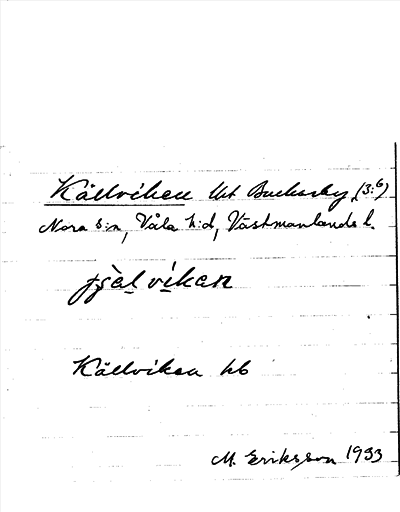 Källviken lht Buckarby (3:6)
Nora s:n, Våla h:d, Västmanlands l.
viken
Källviken hb
M. Eriksson 1933